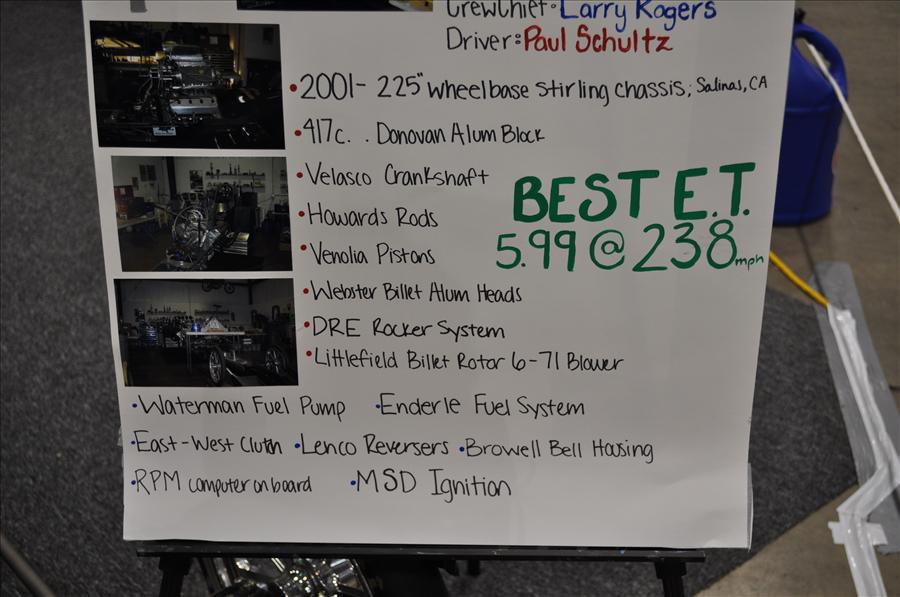 CrewChief: Larry Rogers
Driver: Paul Schultz
•2001- 225" wheelbase stirling chassis; Salinas, CA
•417c. . Donovan Alum Block
•Velasco Crankshaft
•Howards Rods
•Venolia Pistons
BEST E.T.
5.99 @ 238 mph
•Webster Billet Alum Heads
•DRE Rocker System
•Littlefield Billet Rotor 6-71 Blower
•Waterman Fuel Pump •Enderle Fuel System
•East-West Clutch •Lenco Reversers •Browell Bell Housing
•RPM computer on board •MSD Ignition